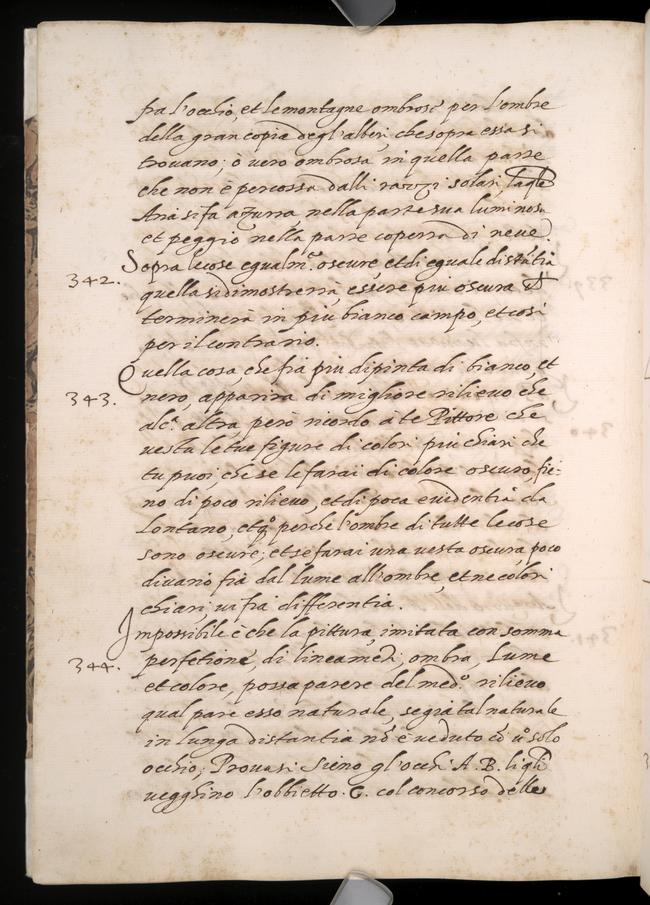 fra l'occhio, et le montagne ombrose per l'ombre
della gran copia degl'alberi, che sopra essa si
trovano; o vero ombrosa in quella parte
che non è percossa dalli razzi solari,
Aria si fa azurra nella parte sua luminosa
et peggio nella parte coperta di neve.
342. Sopra le cose egualm.te oscure, et di eguale distãtia
quella si dimostrerrà essere piu oscura
terminerà in piu bianco campo, et cosi
per il contrario.
Quella cosa, che fia piu dipinta di bianco, et
343. nero, apparira di migliore rilievo che
alc.a altra però ricordo à te Pittore che
vesta le tue figure di colori piu chiari che
tu puoi, che se le farai di colore oscuro, fie-
no di poco rilievo, et di poca evidentia da
Lontano, et q.o perche l'ombre di tutte le cose
sono oscure; et se farai una vesta oscura, poco
divario fia dal lume all'ombre, et ne colori
chiari, vi fia differentia.
Impossibile è che la pittura, imitata con somma
344. perfetione, di lineamẽti, ombra, Lume
et colore, possa parere del med.o rilievo
qual pare esso naturale, se già tal naturale
in lunga distantia nõ è veduto cõ ũ solo
occhio; Provasi. Sieno gl'occhi A. B. li qli
vegghino l'obbietto. C. col concorso delle